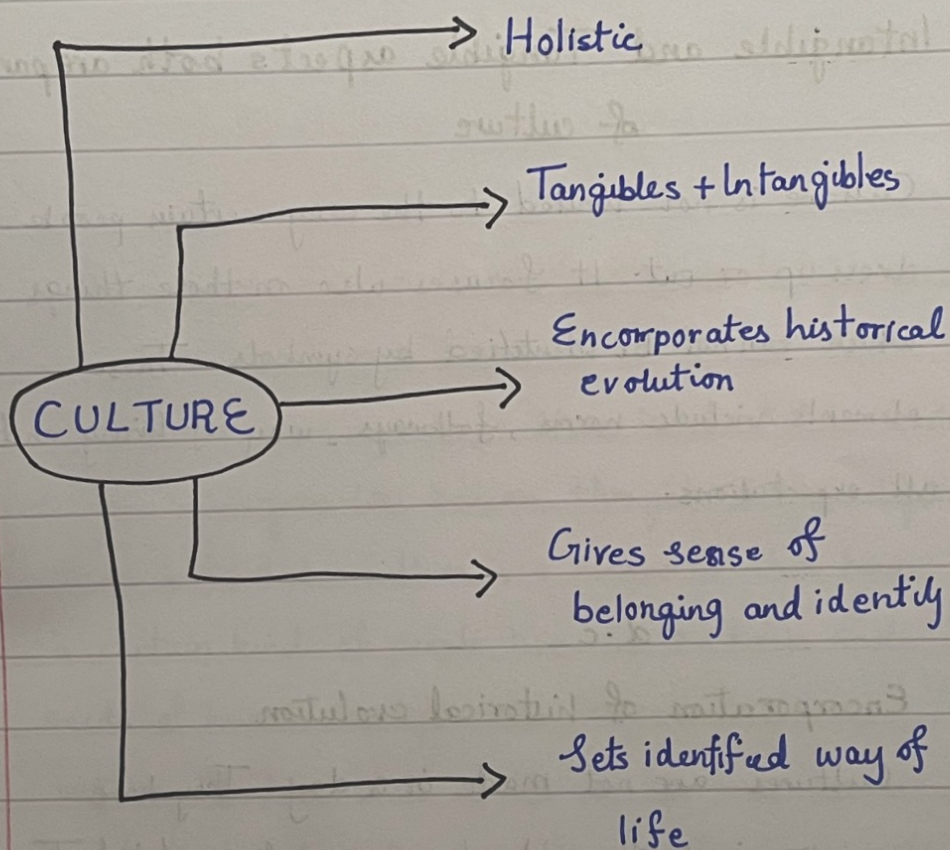 Holistic
Tangibles + Intangibles
Encorporates historical
evolution
CULTURE
Gives sense of
belonging and identity
Sets identified way of
life